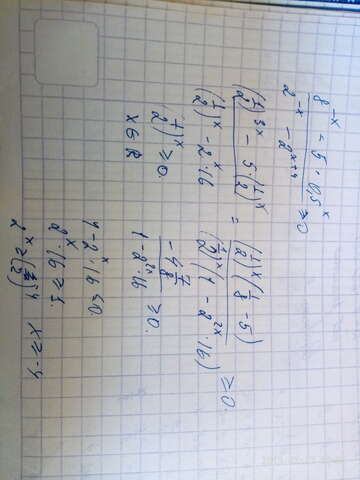 8^{-x} - 5 · 0,5^x / 2^{-x} - 2^{x+4} ≥ 0
(1/2)^{3x} - 5 · (1/2)^x / (1/2)^x - 2^x · 16 = (1/2)^x (1/8 - 5) / (1/2)^x (1 - 2^{2x} · 16) ≥ 0.
(1/2)^x ≥ 0. -4 7/8 / 1 - 2^{2x} · 16 ≥ 0.
x ∈ R
1 - 2^x · 16 ≤ 0.
2^x · 16 ≥ 1.
x ≥ -4